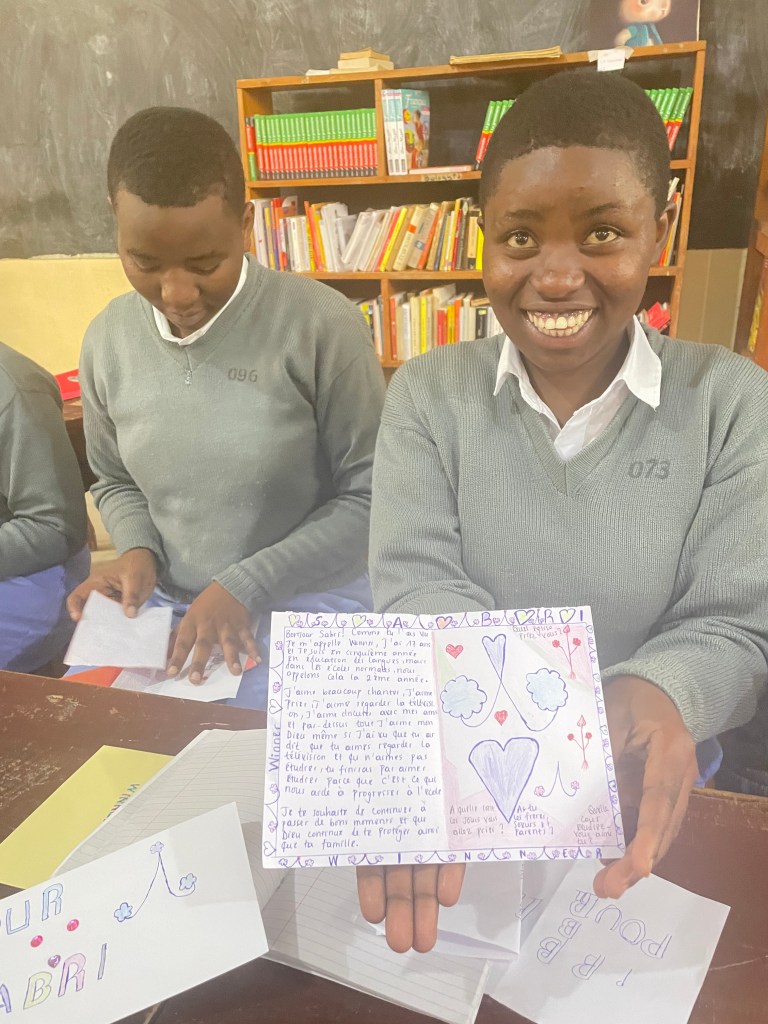 096
073
S A B R I
Bonjour Sabri! Comme tu l'as vu
Je m'appelle Winner, j'ai 17 ans
et Je suis en cinquième année
En éducation des langues, mais
dans les écoles normales, nous
appelons cela la 2ème année.
J'aime beaucoup chanter, J'aime
Prier, J'aime regarder la
J'aime discuter avec mes
et par-dessus tout J'aime mon
Dieu même si J'ai vu que tu as
dit que tu aimes regarder la
télévision et tu n'aimes pas
étudier, tu finiras par aimer
étudier parce que c'est ce qui
nous aide à progresser à l'école
Je te souhaite de continuer à
passer de bons moments et que
Dieu continue de te protéger ainsi
que ta famille.
Quel église
A quelle
les Jours vous
allez prier?
As-tu
les frères
soeurs et
Parents?
Quelle
Winner
W I N N E R
WIN
OUR
ABRI
POUR